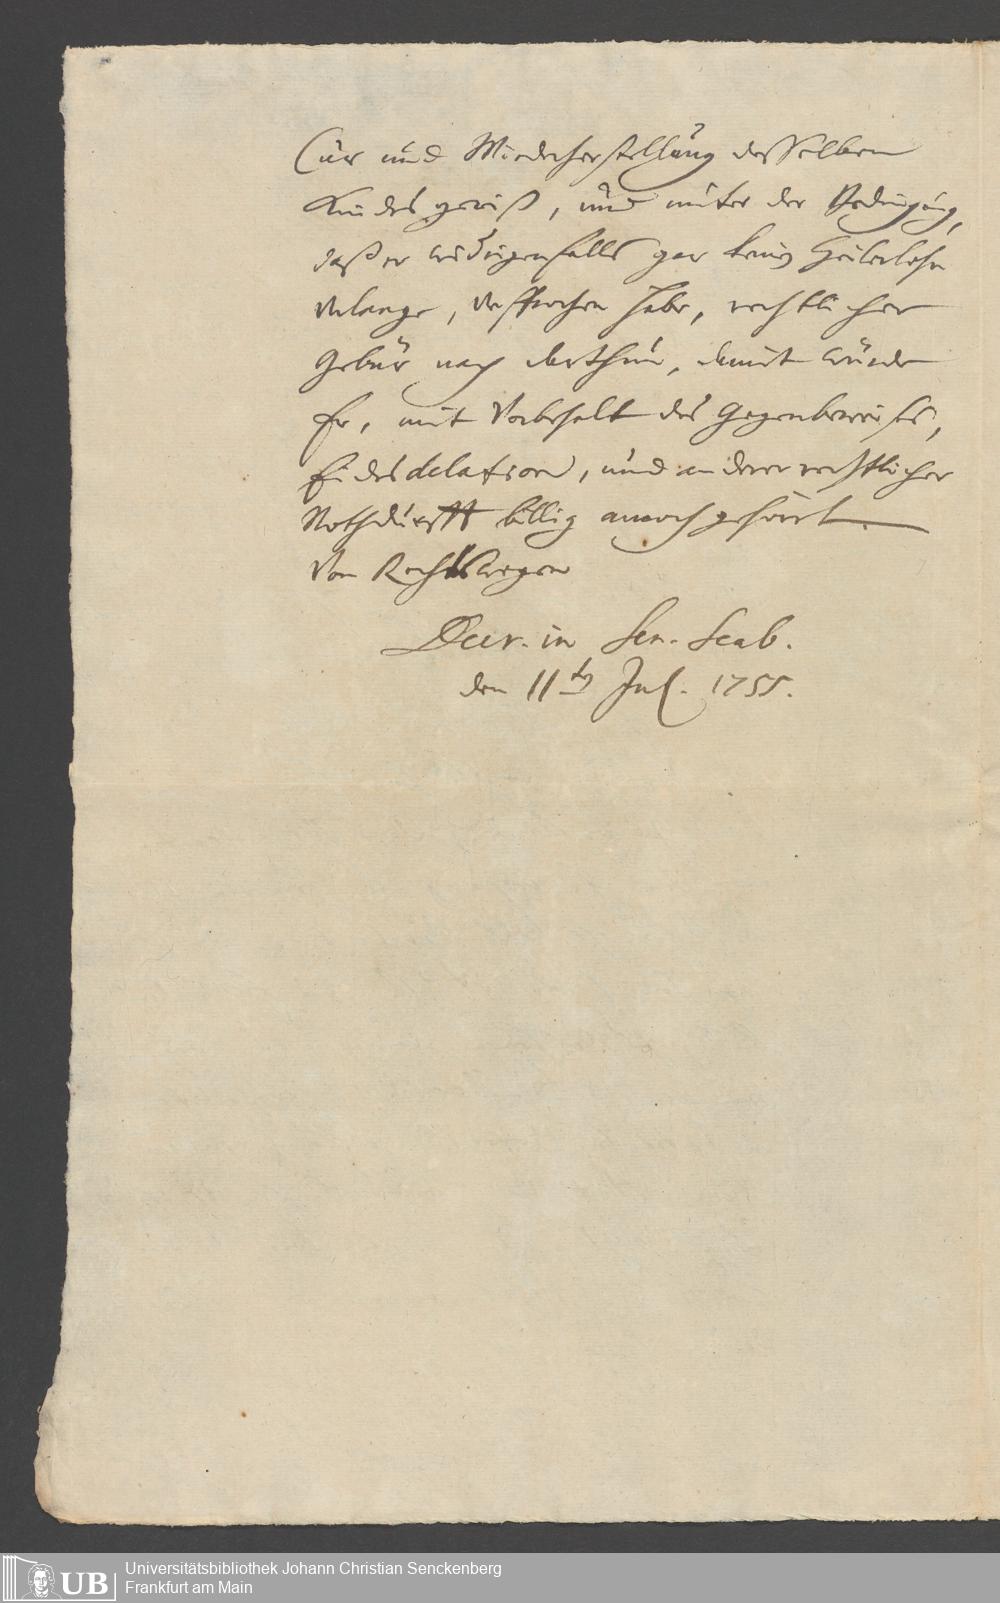 Cur und Wiederherstellung desselben
Kindes gewiß, und unter der Bedingung,
daß er widrigenfalls gar kein Heilerlohn
verlange, versprochen habe, rechtlicher
Gebür nach darthun, damit würde
Er, mit Vorbehalt des Gegenbeweises,
Eides delation, und anderer rechtlicher
Nothdurfft billig annoch gehört.
Von Rechtswegen
Decr. in Sen. Scab.
den 11ten Jul. 1755.
UB
Universitätsbibliothek Johann Christian Senckenberg
Frankfurt am Main